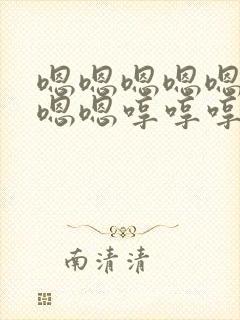 嗯嗯嗯嗯嗯
嗯嗯哼哼哼
南清清